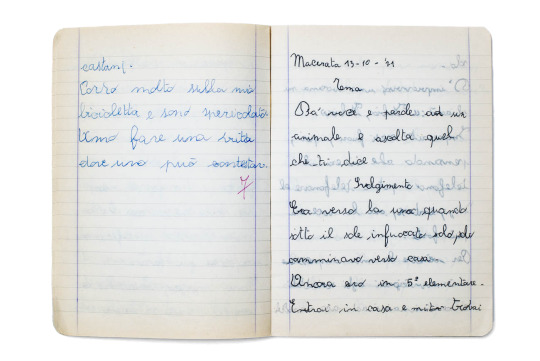 castani.
Corro molto sulla mia
bicicletta e sono spericolato
Amo fare una vita
dove uno può contestare.
7
Macerata 13-10-'71
Tema
Dà voce e parole ad un
animale e ascolta quel
che ti dice
Svolgimento
Era verso la una quando
sotto il sole infuocato solo, solo
camminavo verso casa.
Ancora ero in 5ª elementare.
Entrai in casa e mi